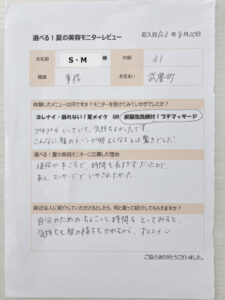 選べる！夏の美容モニターレビュー
記入日 R3 年 8 月 20 日
お名前 S・M 様 年齢 31
職業 事務 お住まい 武豊町
体験したメニューは何ですか？モニターを受けてみていかがでしたか？
ヨレナイ・崩れない！夏メイク OR 炭酸泡洗顔付！プチマッサージ
プチプチいっていて、気持ちよかったです。
こんなに顔のトーンが明るくなるとは驚きでした！
選べる！夏の美容モニターに応募した理由
値段が手ごろで、時間も長すぎずだったので。
あと、マッサージでいやされたかった
最近友人に紹介していただけるとしたら、何と言って紹介してもらえますか？
自分のためのちょこっと時間をとってみると、
気持ちも顔の様子もかわるから、オススメ
ご協力ありがとうございました。